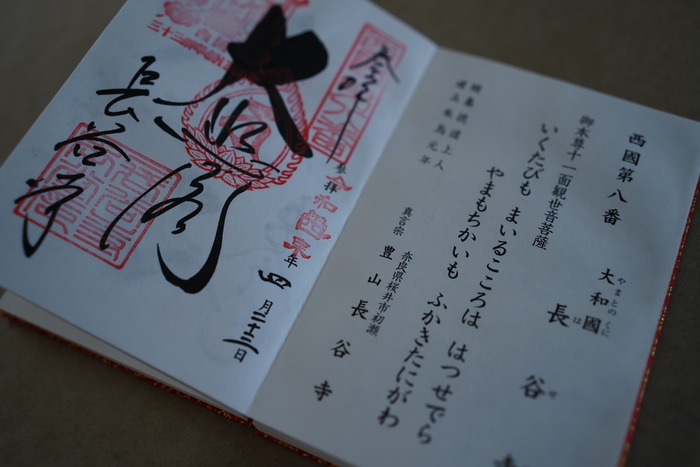 西國第八番
大和國
やまとのくに
長谷寺
はせ
御本尊十一面観世音菩薩
いくたびも まいるこころは はつせでら
やまもちかいも ふかきたにがわ
奈良県桜井市初瀬
真言宗 豊山長谷寺
開基徳道上人
建立朱鳥元年
奉拝
令和
年
四月二十三日
大悲閣
長谷寺